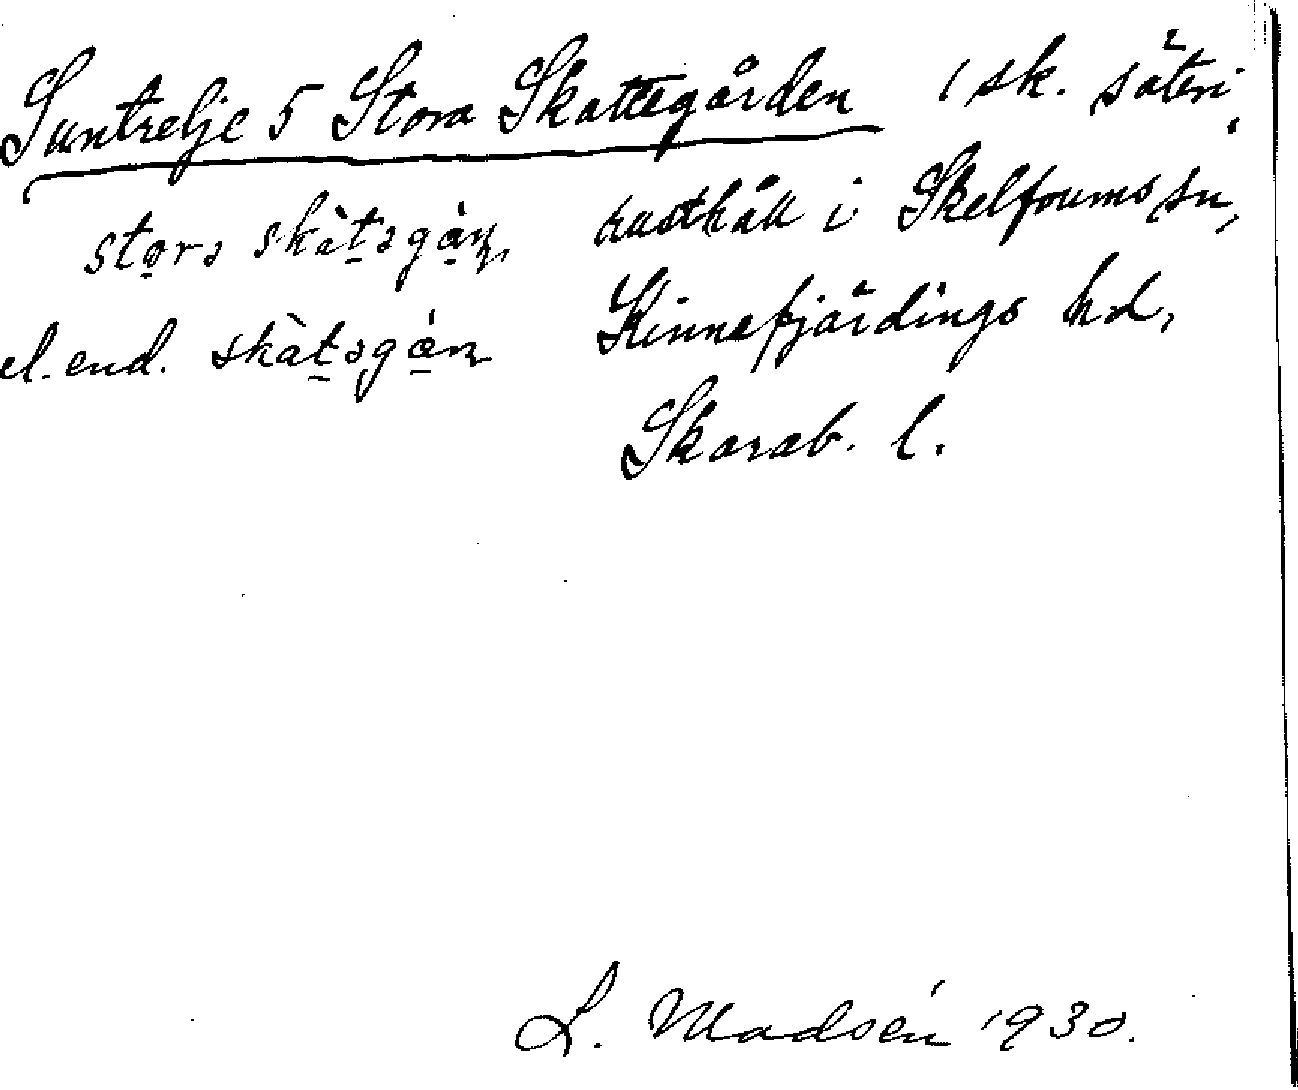 Suntrelje 5 Stora Skattegården 1 sk. säteri
stora skàtsgån rusthåll i Skelfvums sn,
el. end. skàtsgån Kinnefjärdings hd,
Skarab. l.
L. Madsén 1930.